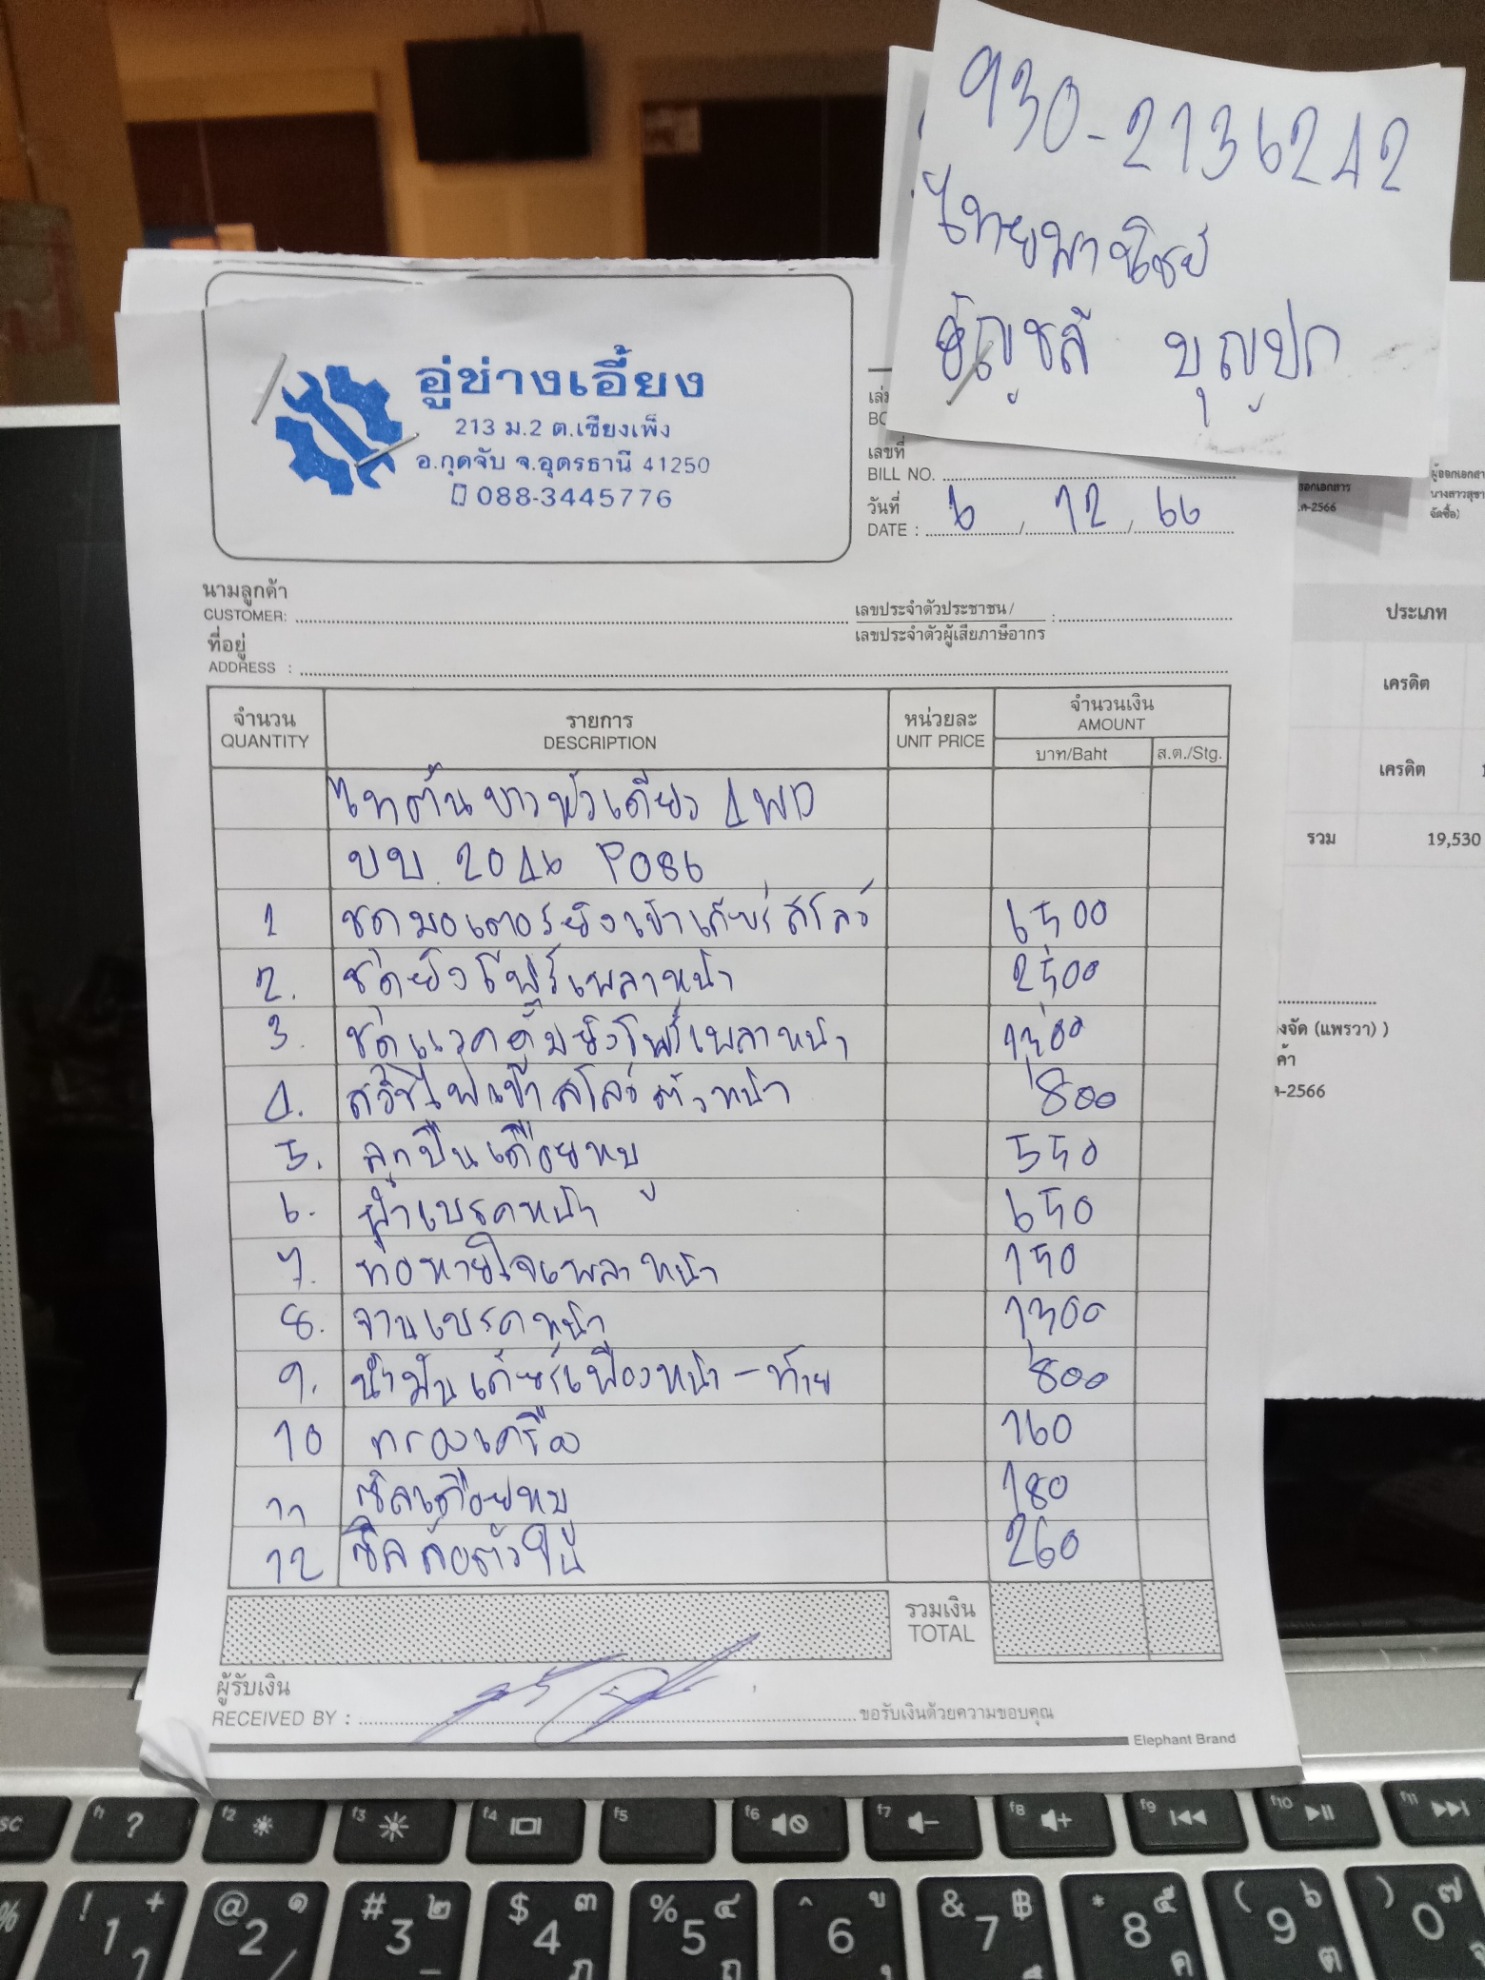 930-2136242
ไทยพาณิชย์
อัญชลี บุญปก
อู่ช่างเอี้ยง
213 ม.2 ต.เชียงเพ็ง
อ.กุดจับ จ.อุดรธานี 41250
088-3445776
เลขที่
BILL NO.
วันที่
DATE : 6 / 12 / 66
นามลูกค้า
CUSTOMER:
เลขประจำตัวประชาชน /
เลขประจำตัวผู้เสียภาษีอากร
ที่อยู่
ADDRESS :
จำนวน รายการ หน่วยละ จำนวนเงิน
QUANTITY DESCRIPTION UNIT PRICE AMOUNT
บาท/Baht ส.ต./Stg.
ไทตั้นขาวหัวเดียว 4WD
บบ. 2046 P086
1 ชุดมอเตอร์ยิงเข้าเกียร์สโลว์ 6500
2. ชุดยิงโฟร์เพลาหน้า 2500
3. ชุดแวคคั่มยิงโฟร์เพลาหน้า 1300
4. สวิชไฟเข้าสโลว์ตัวหน้า 800
5. ลูกปืนเดือยหมู 550
6. ผ้าเบรคหน้า 650
7. ท่อหายใจเพลาหน้า 150
8. จานเบรคหน้า 1300
9. น้ำมันเกียร์เฟืองหน้า - ท้าย 800
10 กรองเครื่อง 160
11 ซิลเดือยหมู 180
12 ซิลล้อตัวใน 260
รวมเงิน
TOTAL
ผู้รับเงิน
RECEIVED BY : ขอรับเงินด้วยความขอบคุณ
Elephant Brand
ประเภท
เครดิต
เครดิต
รวม 19,530
งจัด (แพรวา) )
ค้า
-2566
f1 ? f2 f3 f4 f5 f6 f7 f8 f9 f10 f11
! 1 + @ 2 ๑ / # 3 ๒ _ $ 4 ๓ ภ % 5 ๔ ถ ^ 6 ู ุ & 7 ฿ ึ * 8 ๕ ค ( 9 ๖ ต ) 0 ๗ จ